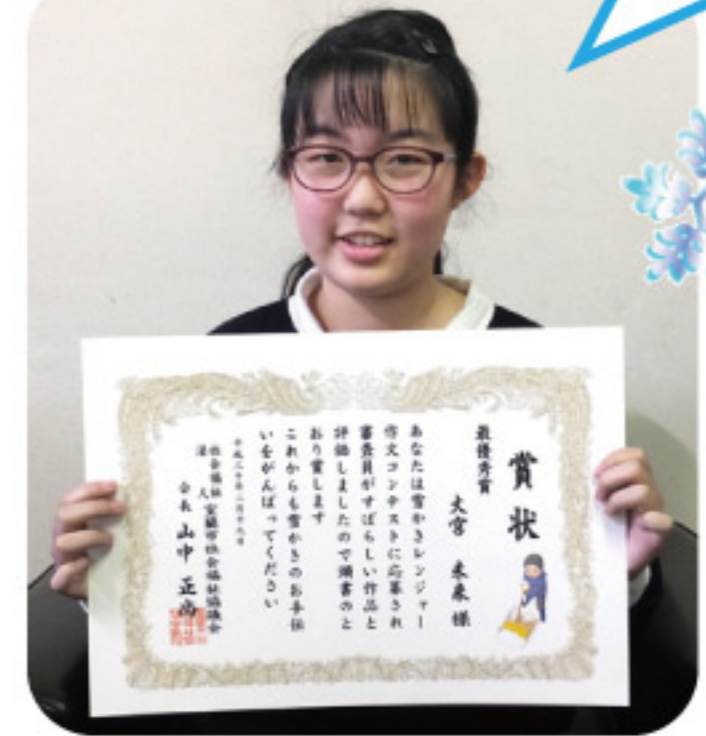 賞状
最優秀賞
大宮 未来 様
あなたは雪かきレンジャー
作文コンテストに応募され
審査員がすばらしい作品と
評価しましたので頭書のと
おり賞します
これからも雪かきのお手伝
いをがんばってください
平成三十年二月十九日
社会福祉
法人 室蘭市社会福祉協議会
会長 山中 正尚